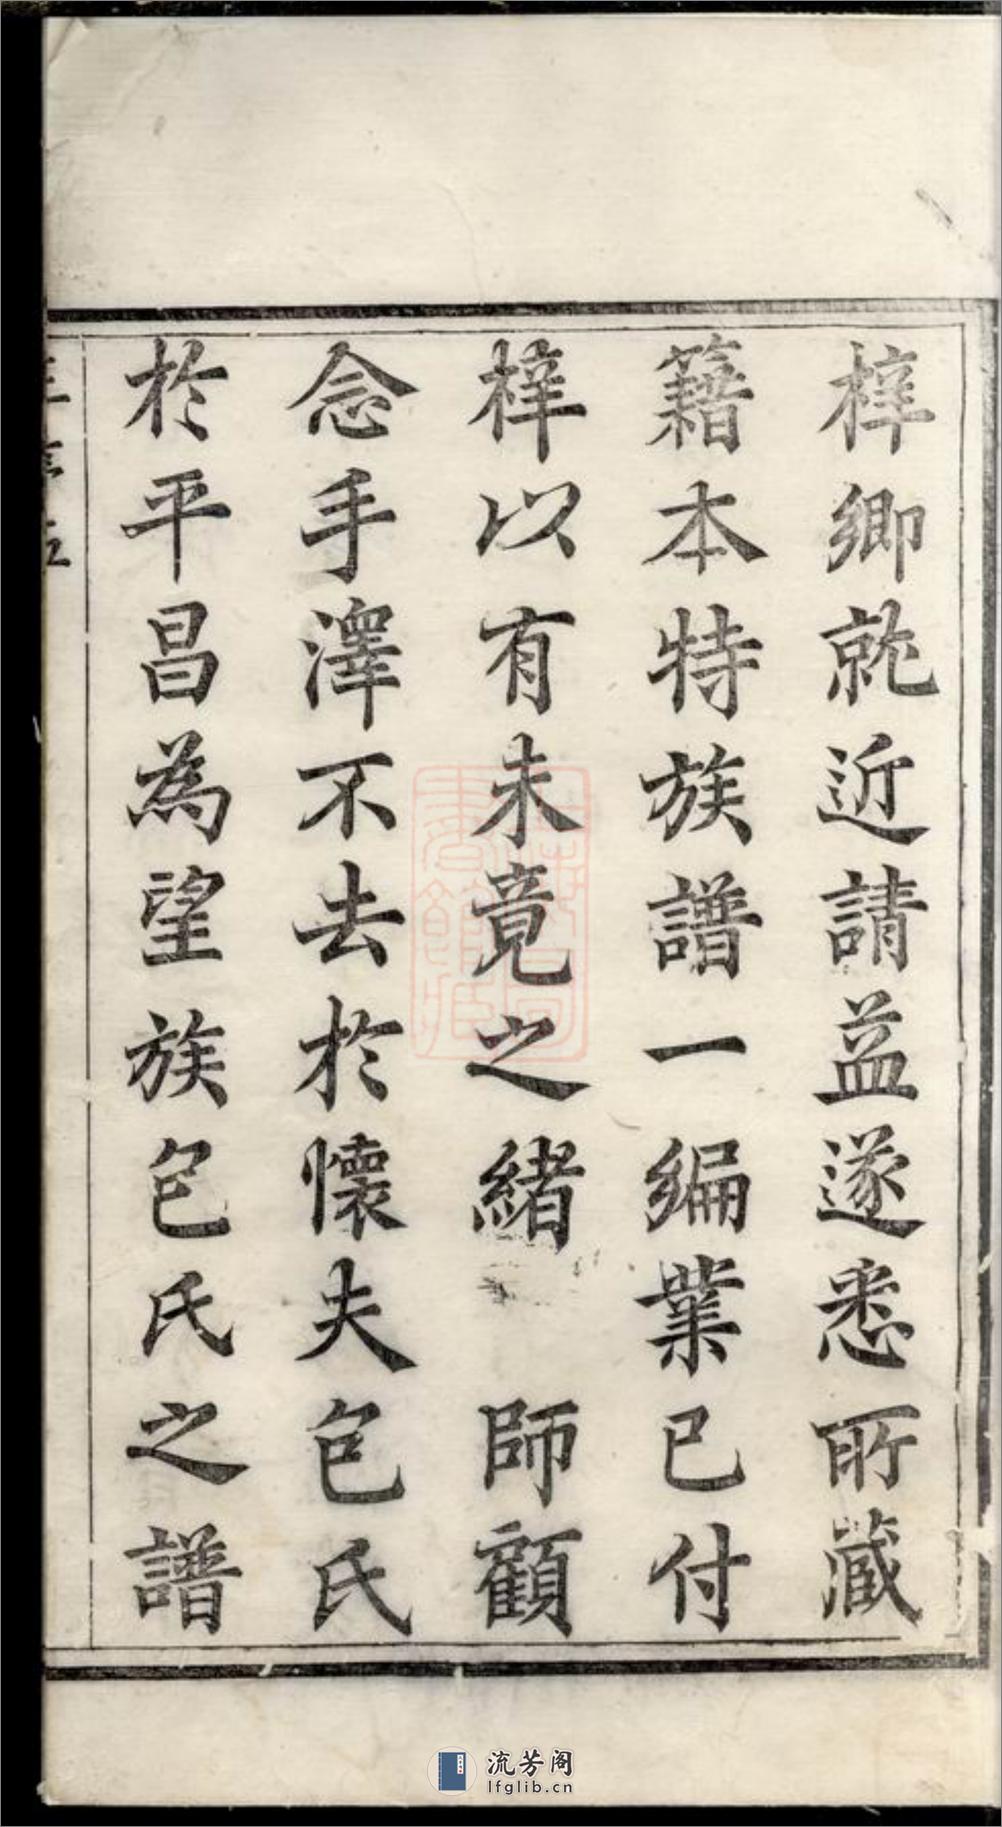 梓卿就近請益遂悉所藏
籍本特族譜一編業已付
梓以有未竟之緒　師顧
念手澤不去於懷夫包氏
於平昌為望族包氏之譜
流芳阁
lfglib.cn